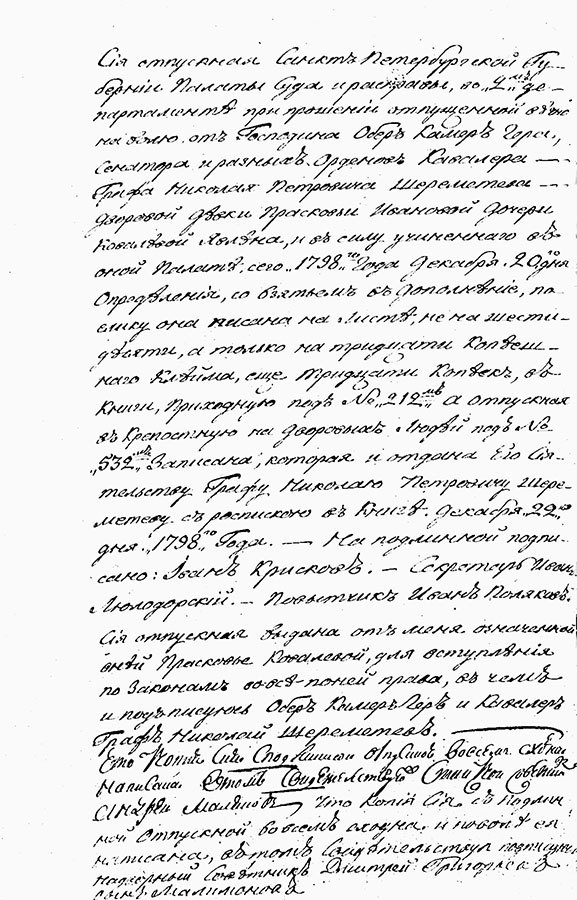 Сія отпускная Санктъ Петербургской Гу-
берніи Палаты Суда и расправы, во „2мъ“ де-
партаментѣ при прошеніи отпущенной вѣчно
на волю отъ Господина Оберъ Камеръ Гера,
Сенатора и разныхъ Орденовъ Кавалера —
Графа Николая Петровича Шереметева —
дворовой дѣвки Прасковьи Ивановой Дочери
Ковалѣвой Явлена, и въ силу учиненнаго въ
оной Палатѣ, сего „1798“го Года Декабря 20го дня
Опредѣленія, со взятьемъ въ дополнѣніе, по-
елику она писана на Листѣ, не на шести-
дѣсяти, а только на тридцати Копѣеш-
наго Клѣйма, еще тридцати Копѣекъ, въ
Книги, Приходную подъ № „212мъ“ а отпускная
въ Крепостную на дворовыхъ Людѣй подъ №
„532мъ“ Записана, которая и отдана Его Сія-
тельству Графу Николаю Петровичу Шере-
метеву съ роспискою въ Книгѣ. Декабря „22го
дня „1798“го Года. — На подлинной подпи-
сано: Иванъ Крисковъ. — Секретарь Иванъ
Люлодорскій. — Повытчикъ Иванъ Поляковъ.
Сія отпускная выдана отъ меня означенной
Прасковье Ковалевой, для вступлѣнія
по Законамъ во всѣ поней права, въ чемъ
и подъписуюсь Оберъ Камеръ Геръ и Кавалеръ
Графъ Николай Шереметевъ.
Что Копія Сія Сподлинною Отпускною Восвсем сходна
написана Втомъ Свидетельствую
Что Копія Сія съ подлин-
ной Отпускной вовсемъ сходна и
написана, въ томъ Свидѣтельствуя подписуюсь
надворный Совѣтникъ Дмитрей Григорьевъ
сынъ Малимоновъ